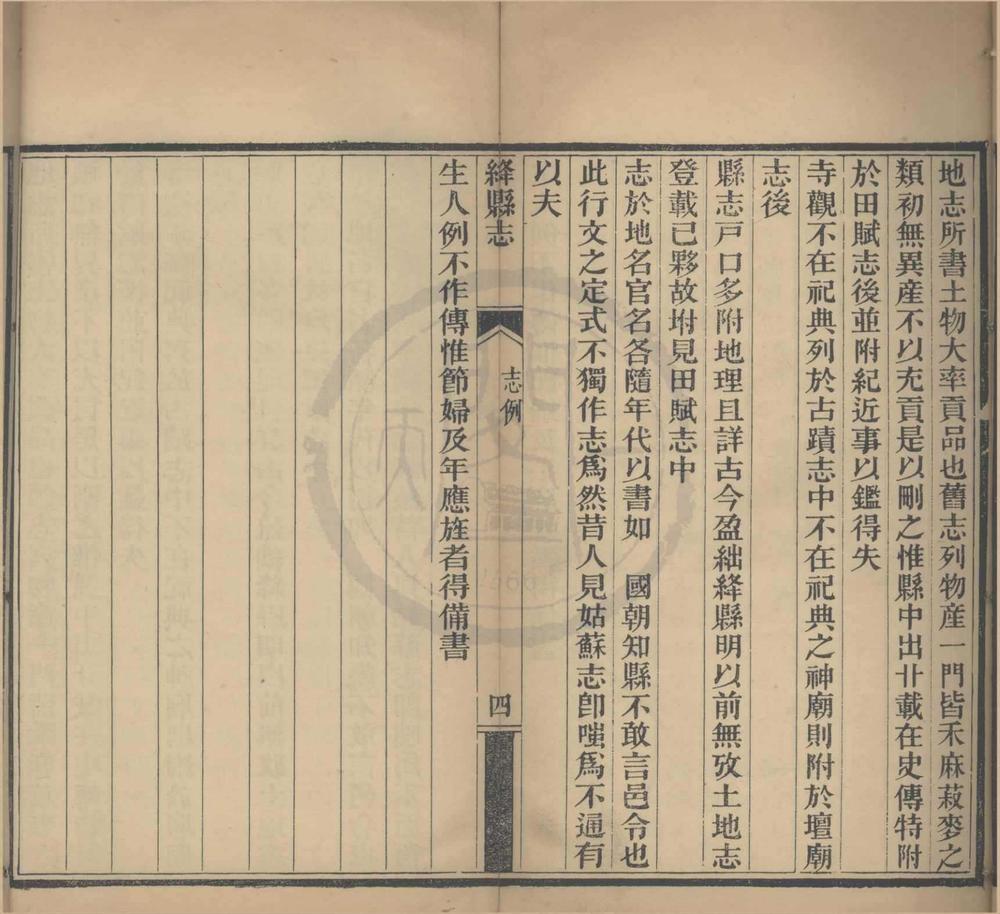 地志所書土物大率貢品也舊志列物産一門皆禾麻菽麥之
類初無異産不以充貢是以刪之惟縣中出卝載在史傳特附
於田賦志後並附紀近事以鑑得失
寺觀不在祀典列於古蹟志中不在祀典之神廟則附於壇廟
志後
縣志戸口多附地理且詳古今盈絀絳縣明以前無攷土地志
登載已夥故坿見田賦志中
志於地名官名各隨年代以書如　國朝知縣不敢言邑令也
此行文之定式不獨作志爲然昔人見姑蘇志卽嗤爲不通有
以夫
絳縣志
志例
四
生人例不作傳惟節婦及年應旌者得備書